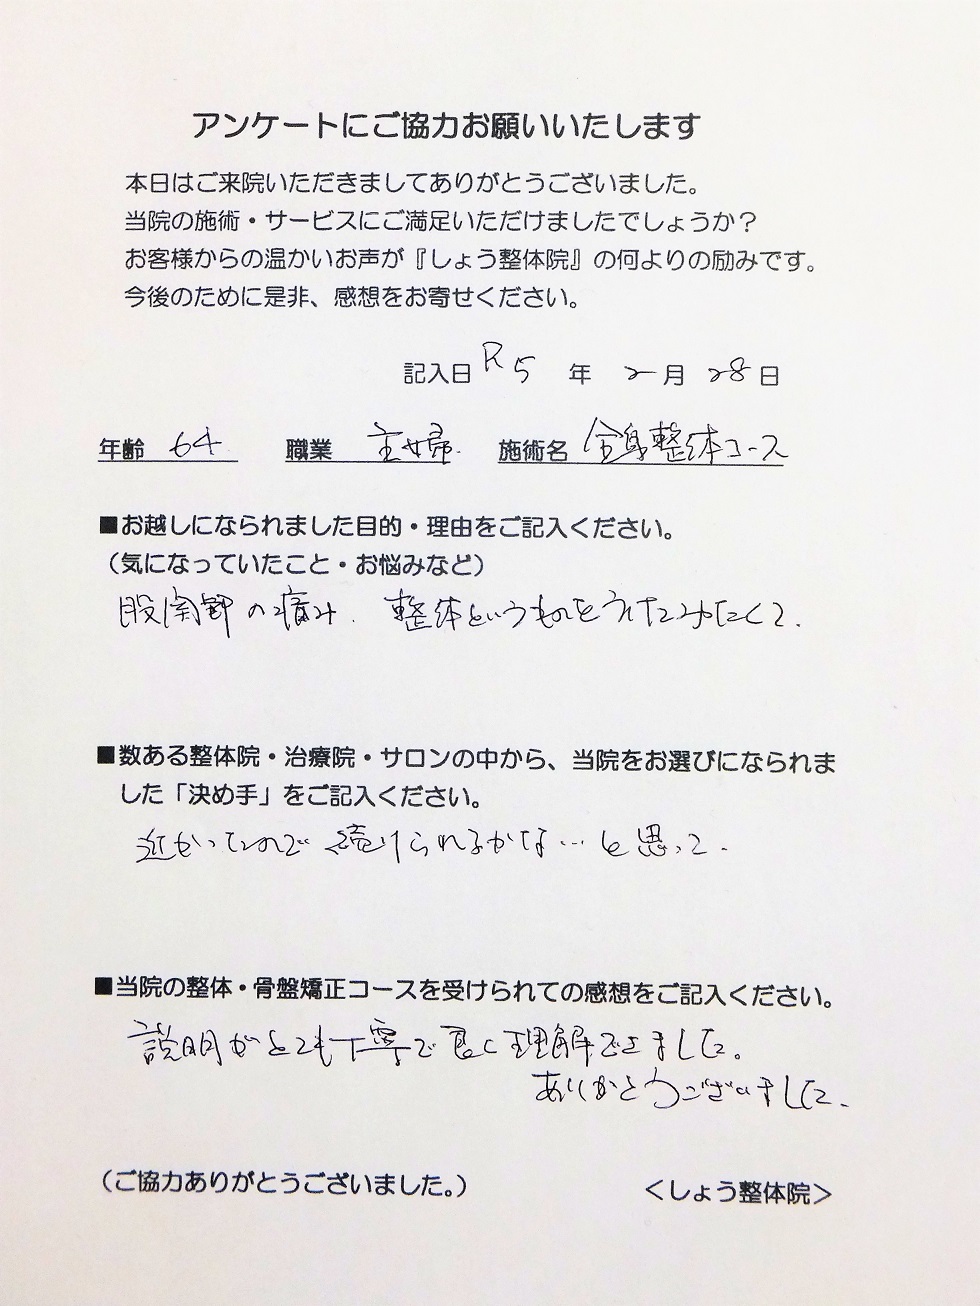 アンケートにご協力お願いいたします
本日はご来院いただきましてありがとうございました。
当院の施術・サービスにご満足いただけましたでしょうか?
お客様からの温かいお声が『しょう整体院』の何よりの励みです。
今後のために是非、感想をお寄せください。
記入日 R5 年 2月 28日
年齢 64 職業 主婦 施術名 全身整体コース
■お越しになられました目的・理由をご記入ください。
(気になっていたこと・お悩みなど)
股関節の痛み. 整体というものを みたくて.
■数ある整体院・治療院・サロンの中から、当院をお選びになられま
した「決め手」をご記入ください。
近かったので 続けられるかな…と思って.
■当院の整体・骨盤矯正コースを受けられての感想をご記入ください。
説明がとても丁寧で良く理解できました。
ありがとうございました.
(ご協力ありがとうございました。)
<しょう整体院>